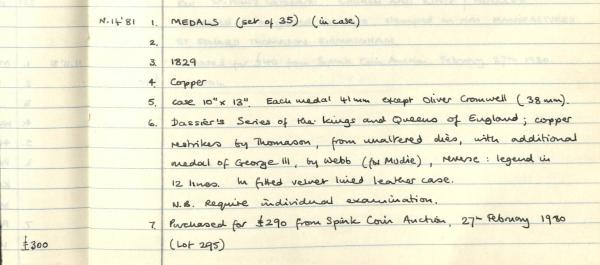 N.14'81 1. MEDALS (set of 35) (in case)
2.
3. 1829
4. Copper
5. Case 10" x 13". Each medal 41mm except Oliver Cromwell (38mm).
6. Dassier's Series of the Kings and Queens of England; copper
restrikes by Thomason, from unaltered dies, with additional
medal of George III, by Webb (for Mudie), reverse: legend in
12 lines. In fitted velvet lined leather case.
N.B. Require individual examination.
7. Purchased for £290 from Spink Coin Auction, 27th February 1980
£300 (Lot 295)